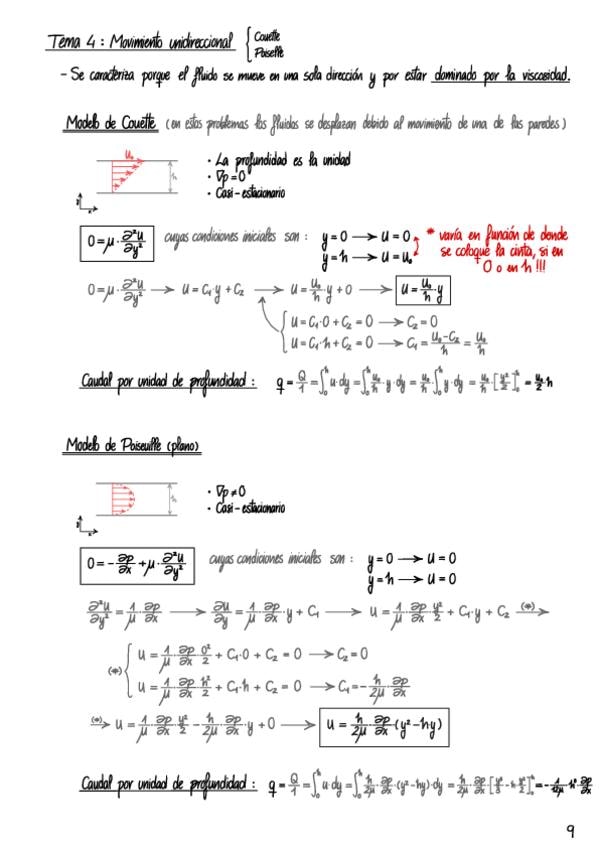 Tema 4: Movimiento unidireccional { Couette
Poiseille
- Se caracteriza porque el fluido se mueve en una sola dirección y por estar dominado por la viscosidad.
Modelo de Couette (en estos problemas los fluidos se desplazan debido al movimiento de una de las paredes)
u₀
h
• La profundidad es la unidad
• ∇p = 0
• Casi-estacionario
x
0 = μ · ∂²u/∂y² cuyas condiciones iniciales son: y = 0 → u = 0
y = h → u = u₀
* varía en función de donde
se coloque la cinta, si en
0 o en h !!!
0 = μ · ∂²u/∂y² → u = C₁·y + C₂ → u = u₀/h · y + 0 → u = u₀/h · y
{ u = C₁·0 + C₂ = 0 → C₂ = 0
u = C₁·h + C₂ = 0 → C₁ = u₀-C₂/h = u₀/h
Caudal por unidad de profundidad: q = Q/1 = ∫₀ʰ u·dy = ∫₀ʰ u₀/h · y·dy = u₀/h · ∫₀ʰ y·dy = u₀/h · [y²/2]₀ʰ = u₀/2 · h
Modelo de Poiseuille (plano)
h
• ∇p ≠ 0
• Casi-estacionario
x
0 = - ∂p/∂x + μ · ∂²u/∂y² cuyas condiciones iniciales son: y = 0 → u = 0
y = h → u = 0
∂²u/∂y² = 1/μ · ∂p/∂x → ∂u/∂y = 1/μ · ∂p/∂x · y + C₁ → u = 1/μ · ∂p/∂x · y²/2 + C₁·y + C₂ (*)→
(*) { u = 1/μ · ∂p/∂x · 0²/2 + C₁·0 + C₂ = 0 → C₂ = 0
u = 1/μ · ∂p/∂x · h²/2 + C₁·h + C₂ = 0 → C₁ = - h/2μ · ∂p/∂x
(*)→ u = 1/μ · ∂p/∂x · y²/2 - h/2μ · ∂p/∂x · y + 0 → u = h/2μ · ∂p/∂x (y² - hy)
Caudal por unidad de profundidad: q = Q/1 = ∫₀ʰ u·dy = ∫₀ʰ h/2μ · ∂p/∂x · (y² - hy)·dy = h/2μ · ∂p/∂x · [y³/3 - h·y²/2]₀ʰ = - 1/12μ · h³ · ∂p/∂x
9